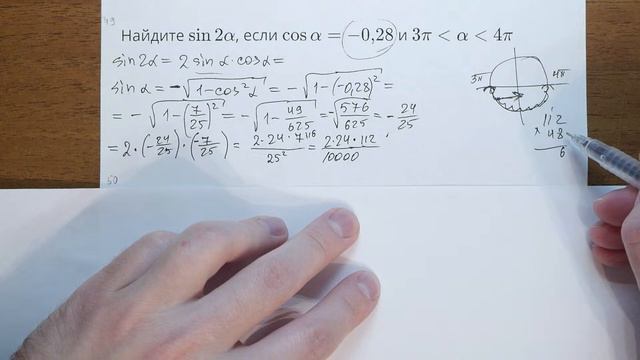 49
Найдите sin 2α, если cos α = −0,28 и 3π < α < 4π
sin2α = 2 sin α · cosα =
sin α = − √(1−cos²α) = − √(1−(−0,28)²) =
= − √(1−(7/25)²) = − √(1−49/625) = −√(576/625) = − 24/25
= 2 · (−24/25) · (−7/25) = 2·24·7¹¹⁶/25² = 2·24·112/10000
3π 4π
1
112
× 48
6
50